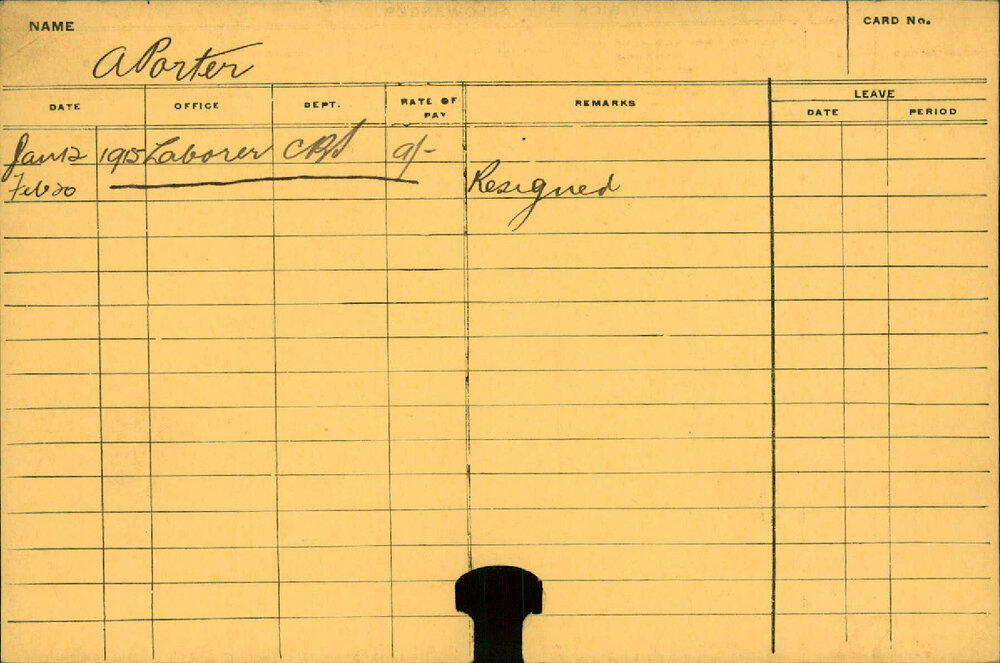 NAME
CARD No.
A Porter
DATE OFFICE DEPT. RATE OF PAY REMARKS LEAVE
DATE PERIOD
Jan 12 1915 Laborer 9/-
Feb 20 Resigned